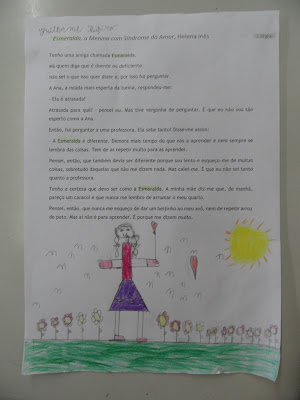 Guilherme
Esmeralda, a Menina com Síndrome do Amor, Helena Inês
Tenho uma amiga chamada Esmeralda.
Há quem diga que é doente ou deficiente.
Não sei o que isso quer dizer e, por isso fui perguntar.
A Ana, a miúda mais esperta da turma, respondeu-me:
- Ela é atrasada!
Atrasada para quê? – pensei eu. Mas tive vergonha de perguntar. É que eu não sou tão
esperto como a Ana.
Então, fui perguntar a uma professora. Ela sabe tanto! Disse-me assim:
- A Esmeralda é diferente. Demora mais tempo do que nós a aprender e nem sempre se
lembra das coisas. Tem de as repetir muito para as aprender.
Pensei, então, que também devia ser diferente porque sou lento e esqueço-me de muitas
coisas, sobretudo daquelas que não me dizem nada. Mas calei-me. É que eu não sei tanto
quanto a professora.
Tenho a certeza que devo ser como a Esmeralda. A minha mãe diz-me que, de manhã,
pareço um caracol e que nunca me lembro de arrumar o meu quarto.
Pensei, então, que nunca me esqueço de dar um beijinho ao meu avô, nem de repetir arroz
de pato. Mas aí não é para aprender. É porque me dizem muito.